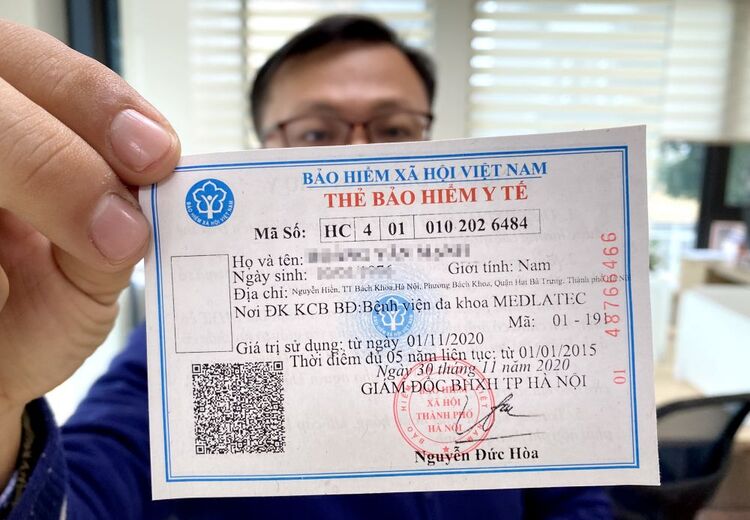 BẢO HIỂM XÃ HỘI VIỆT NAM
THẺ BẢO HIỂM Y TẾ
BẢO HIỂM XÃ HỘI VIỆT NAM
Mã Số: HC 4 01 010 202 6484
Họ và tên:
Ngày sinh: Giới tính: Nam
Địa chỉ: Nguyễn Hiền, TT Bách Khoa, Hà Nội, Phương Bách Khoa, Quận Hai Bà Trưng, Thành phố Hà Nội
Nơi ĐK KCB BĐ: Bệnh viện đa khoa MEDLATEC
Mã: 01 - 191
Giá trị sử dụng: từ ngày 01/11/2020
Thời điểm đủ 05 năm liên tục: từ 01/01/2015
Ngày 30 tháng 11 năm 2020
GIÁM ĐỐC BHXH TP HÀ NỘI
BẢO HIỂM XÃ HỘI VIỆT NAM
BẢO HIỂM
XÃ HỘI
THÀNH PHỐ
HÀ NỘI
Nguyễn Đức Hòa
01 48766466